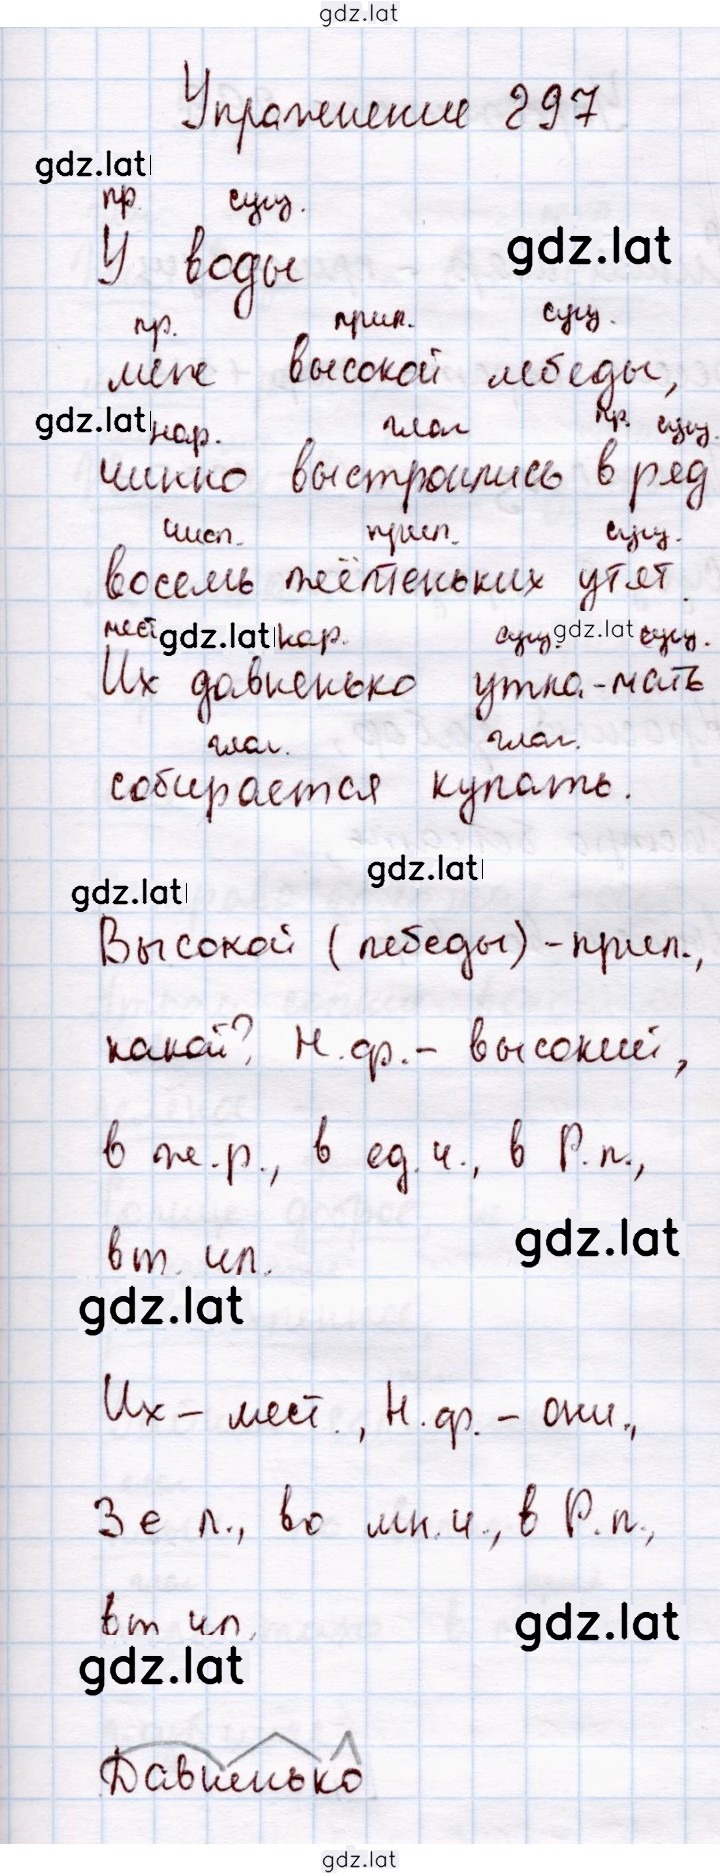 gdz.lat
Упражнение 297
gdz.lat
пр. сущ.
У воды
gdz.lat
пр. прил. сущ.
меж высокой лебеды,
gdz.lat
нар. глаг пр. сущ.
чинно выстроились в ряд
числ. прил. сущ.
восемь жёлтеньких утят.
мест gdz.lat нар. сущ. gdz.lat сущ.
Их давненько утка-мать
глаг. глаг.
собирается купать.
gdz.lat
gdz.lat
Высокой (лебеды) - прил.,
какой? Н.ф.- высокий,
в ж.р., в ед.ч., в Р.п.,
gdz.lat
вт. чл.
gdz.lat
Их - мест., Н.ф. - они.,
3 е л., во мн.ч., в Р.п.,
вт чл.
gdz.lat
gdz.lat
Давненько
gdz.lat